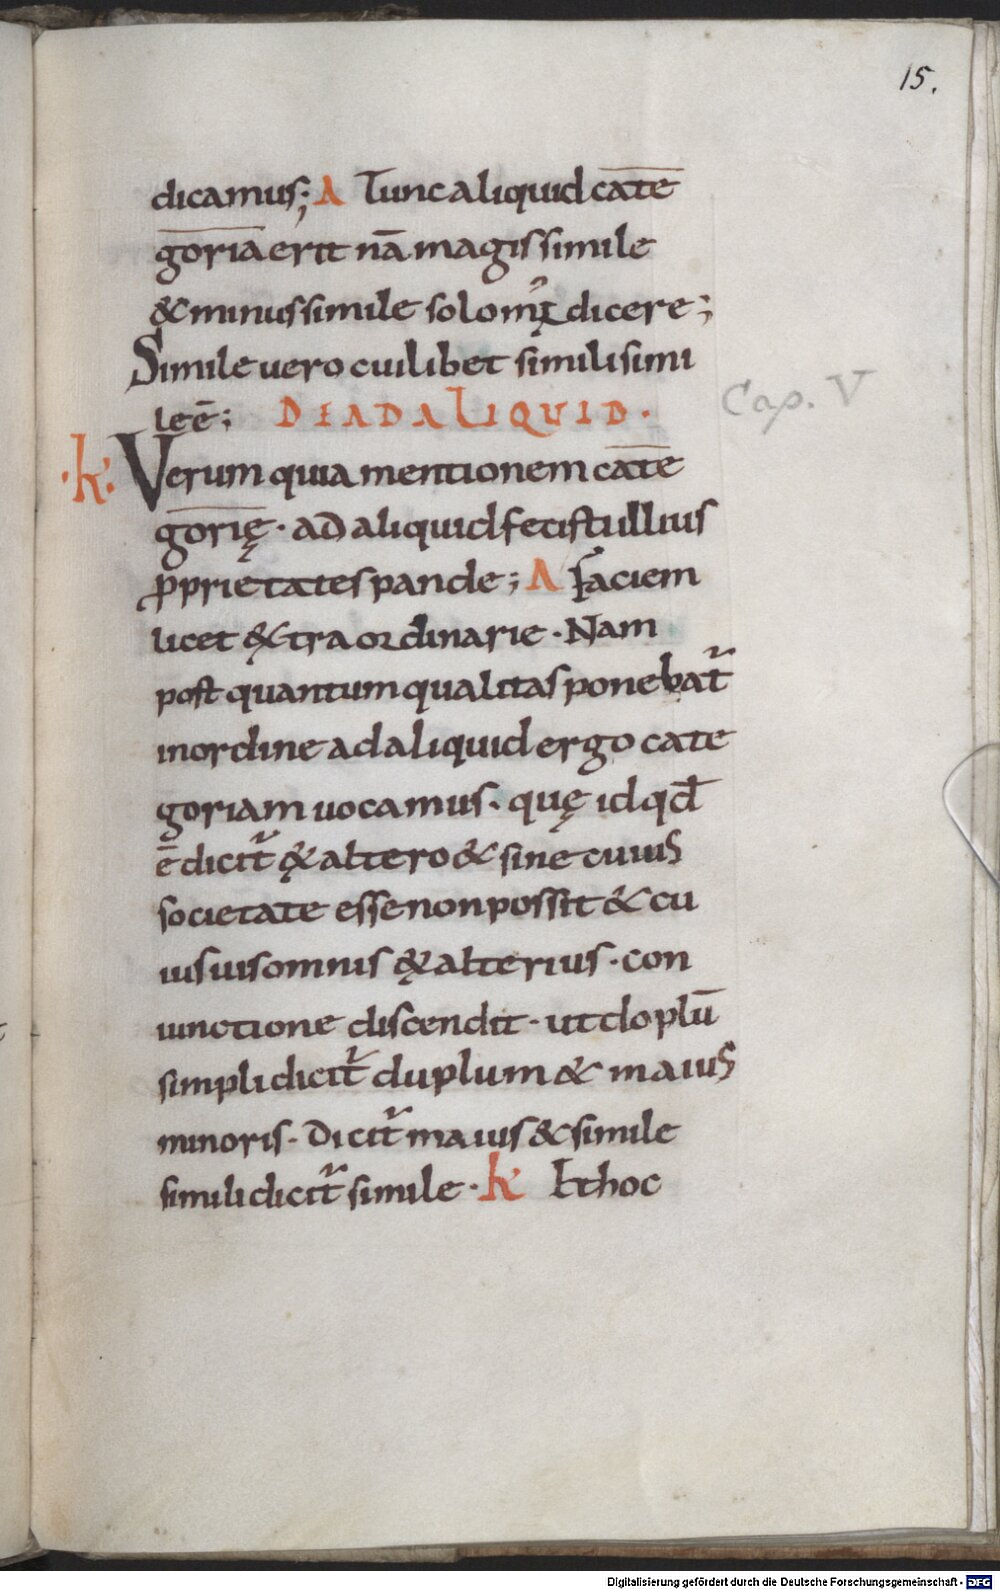 15.
dicamus; A Tunc aliquid cate
goria erit nā magis simile
& minus simile solom᷑ dicere;
Simile uero cuilibet simili simi
le ē; DE AD ALIQUID.
·k· Verum quia mentionem cate
Cap. V
gorię · ad aliquid fecisti illius
ꝓprietates pande; A Faciem
licet &tra ordinarie · Nam
post quantum qualitas ponebat᷑
in ordine ad aliquid ergo cate
goriam uocamus · quę id qđ
ē dicit᷑ ę& altero & sine cuius
societate esse non possit & cu
ius uis omnis ę& alterius · con
iunctione discendit · ut doplū
simpli dicit᷑ duplum & maius
minoris · Dicit᷑ maius & simile
simili dicit᷑ simile · k Et hoc
Digitalisierung gefördert durch die Deutsche Forschungsgemeinschaft - DFG